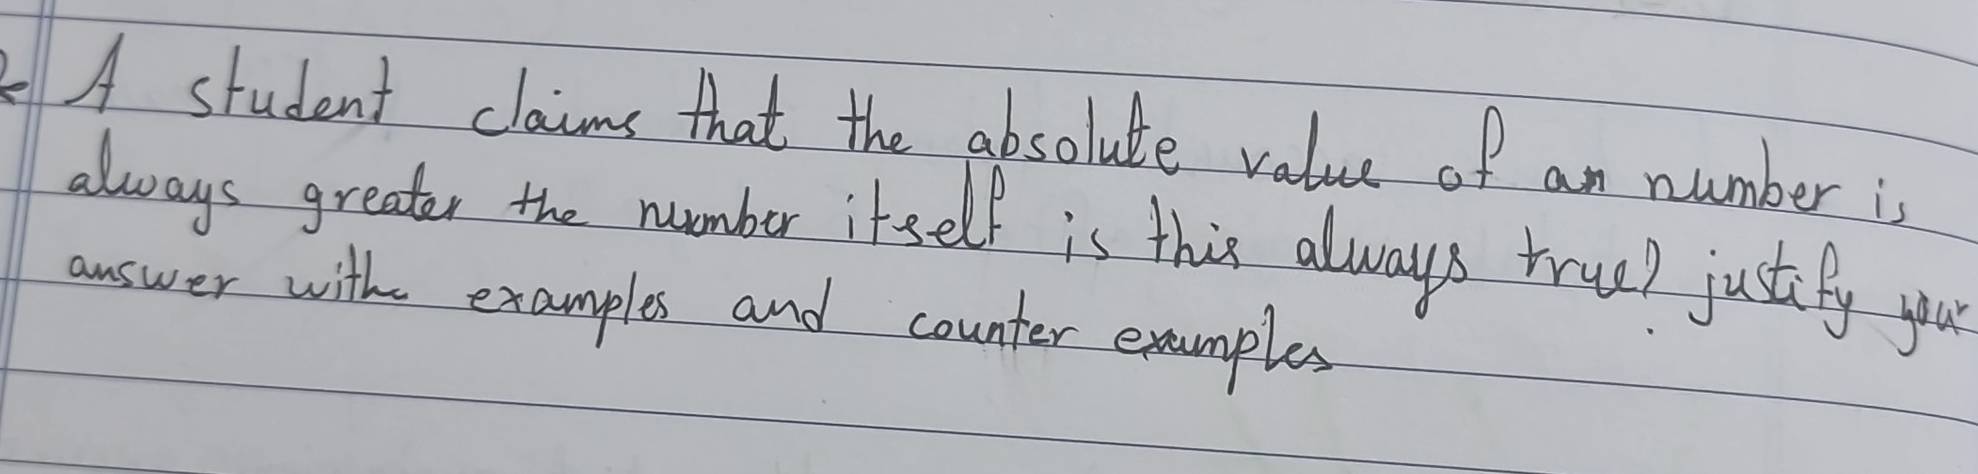 A student claims that the absolute value of an number is
always greater the number itself is this always true? justify your
answer with examples and counter examples